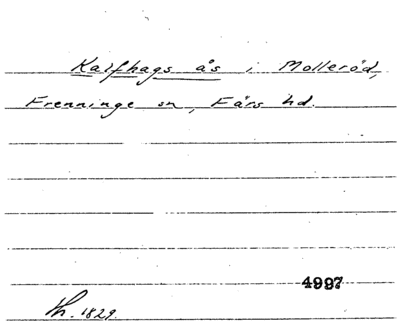 Kalfhags ås i Molleröd,
Frenninge sn, Färs hd.
4997
Th. 1829.